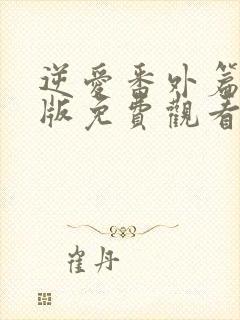 逆愛番外篇
版免費觀看
崔丹